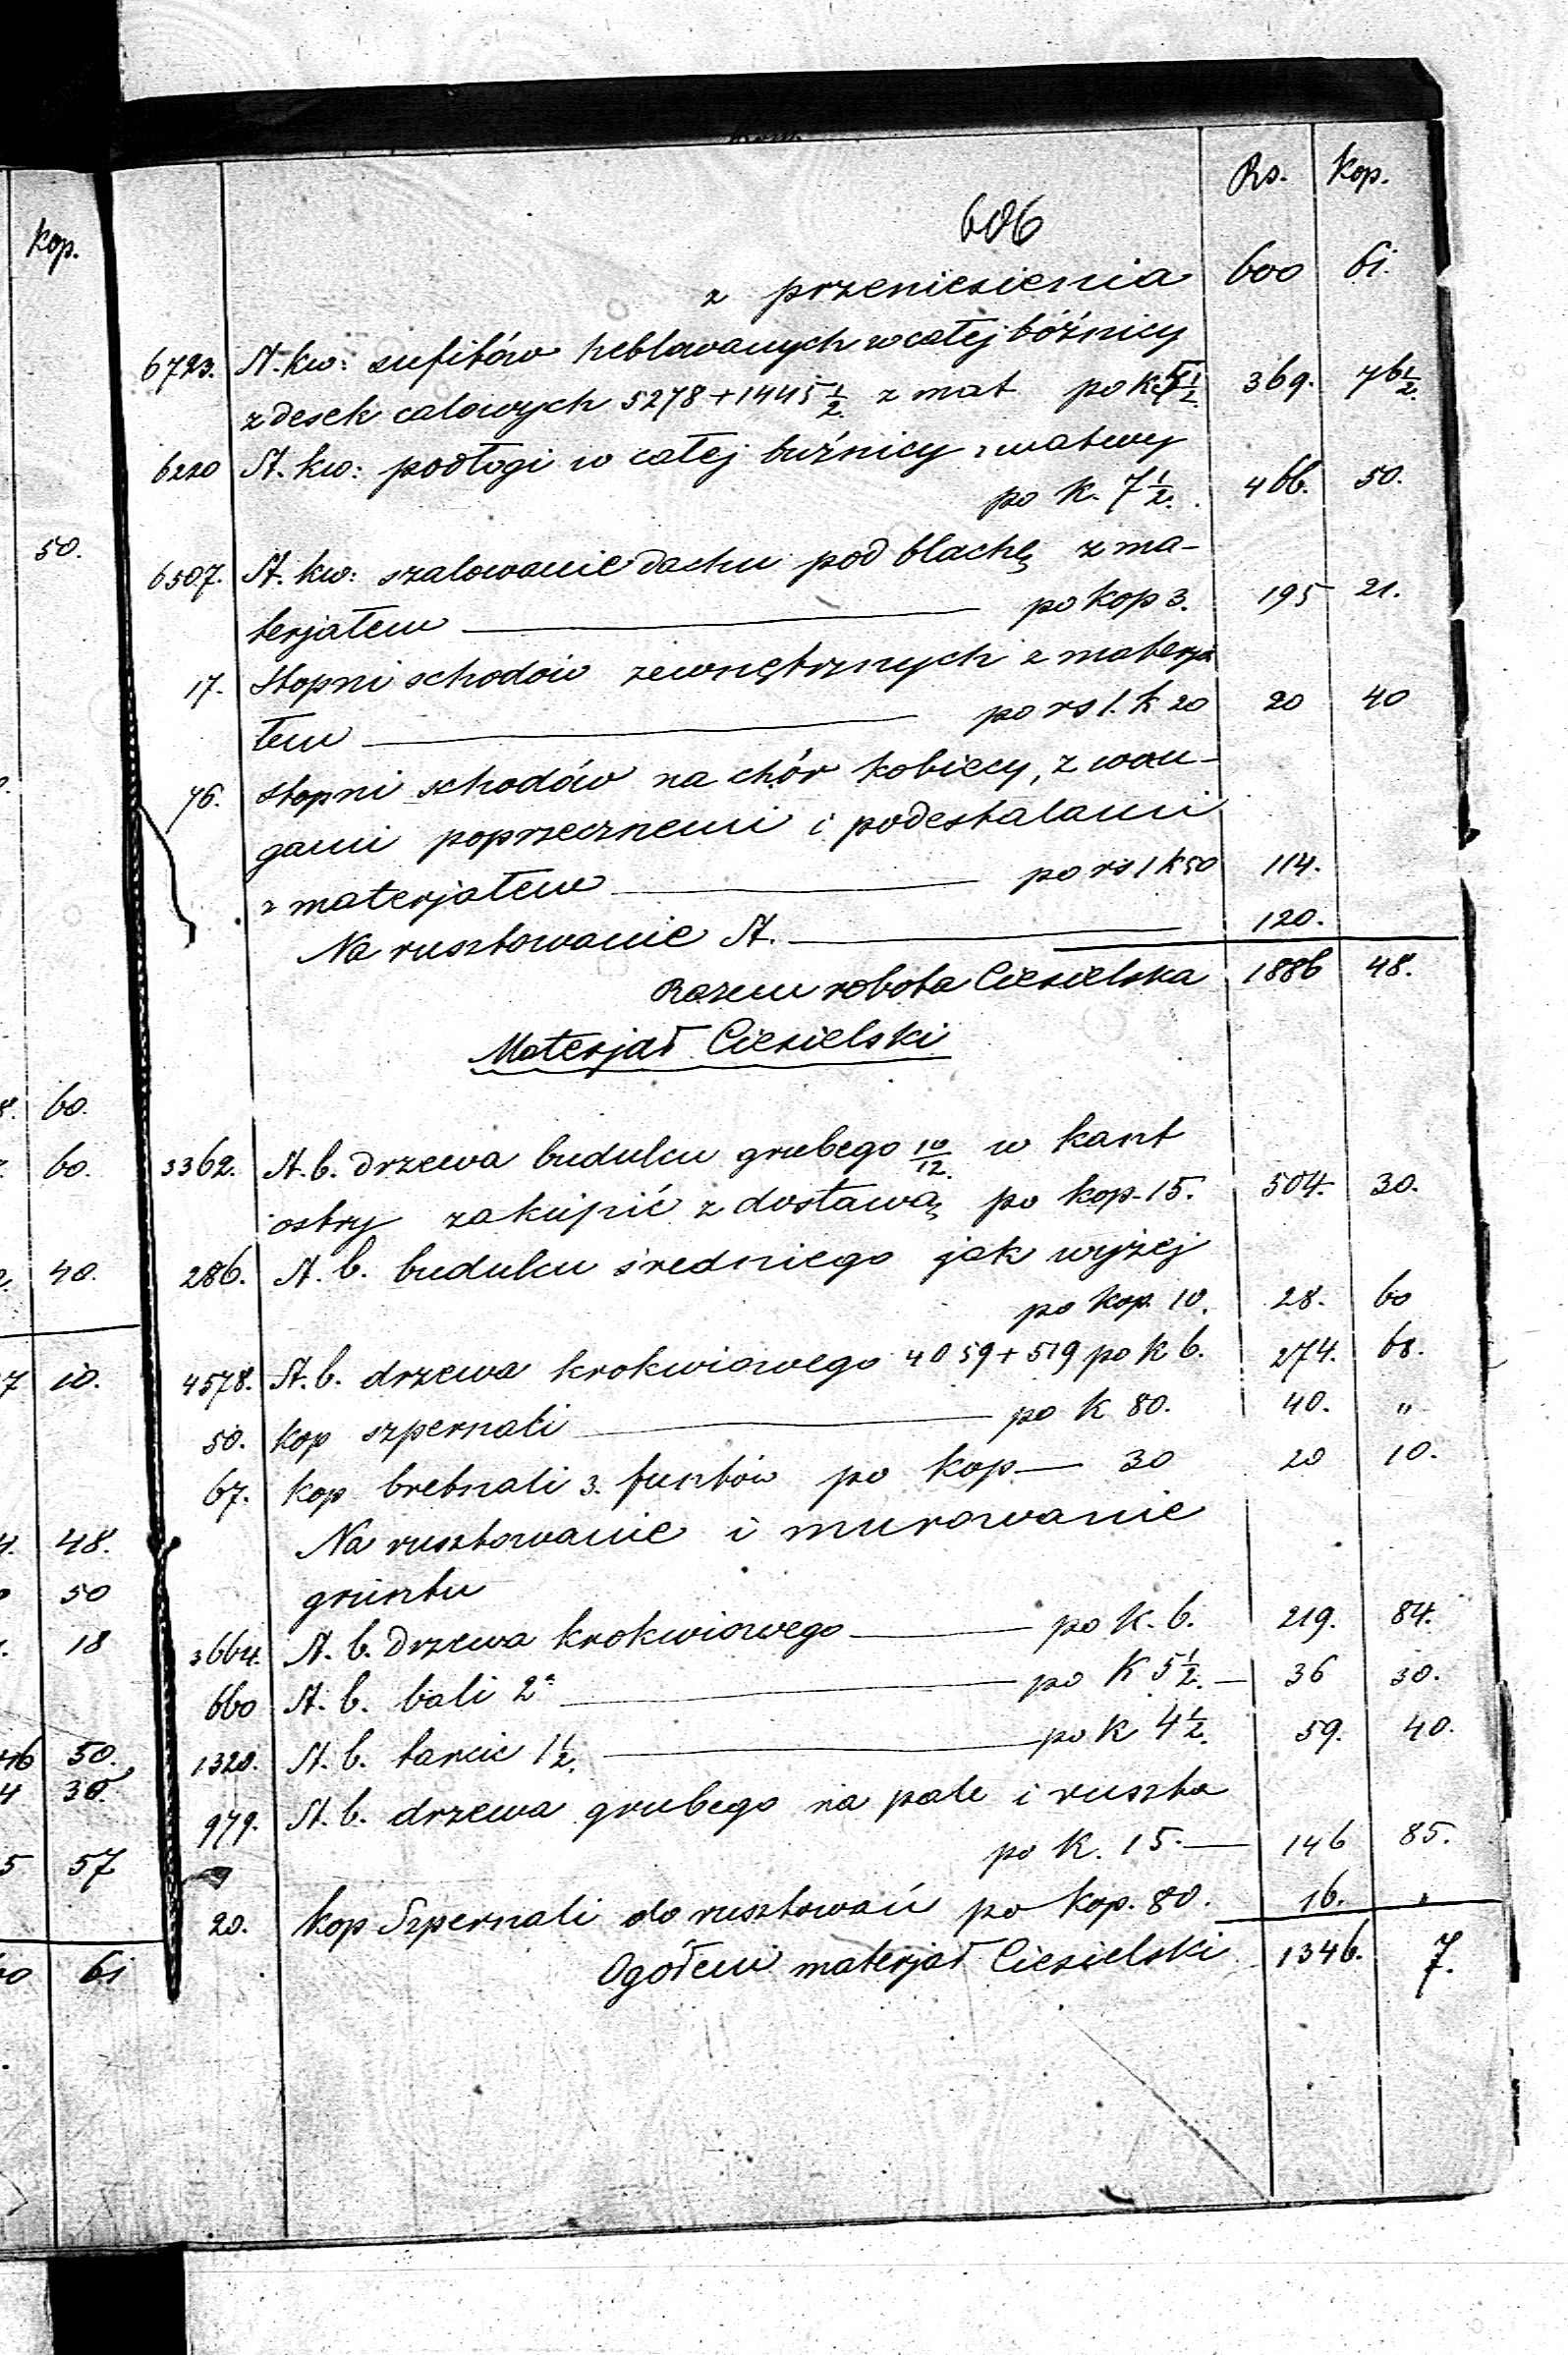 Rs. kop.
606
z przeniesienia 600 61.
6723. St. kw: sufitów heblowanych w całej bóźnicy
z desek calowych 5278+1445 1/2 z mat po k. 5 1/2 369. 76 1/2
6220 St. kw: podłogi w całej buźnicy z
po k. 7 1/2. 466. 50.
6507. St. kw: szalowanie dachu pod blachę z ma-
terjałem po kop 3. 195 21.
17. Stopni schodów zewnętrznych z materja
łem po rs 1. k 20 20 40
76. stopni schodów na chór kobiecy, z wan-
gami poprzecznemi i podestalami
z materjałem po rs 1 k 50 114.
Na rusztowanie St. 120.
Razem robota Ciesielska 1886 48.
Materjał Ciesielski
3362. St. b. drzewa budulcu grubego 10/12 w kant
ostry zakupić z dostawą po kop. 15. 504. 30.
286. St. b. budulcu średniego jak wyżej
po kop. 10. 28. 60
4578. St. b. drzewa krokwiowego 4059+519 po k 6. 274. 68.
50. kop szpernali po k 80. 40. "
67. kop bretnali 3. funtów po kop — 30 20 10.
Na rusztowanie i murowanie
gruntu
3664. St. b. drzewa krokwiowego po k. 6. 219. 84.
660 St. b. bali 2" po k 5 1/2. — 36 30.
1320. St. b. tarcic 1 1/2. po k 4 1/2. 59. 40.
979. St. b. drzewa grubego na pale i ruszta
po k. 15. — 146 85.
20. kop Szpernali do rusztowań po kop. 80. 16. "
Ogółem materjał Ciesielski 1346. 7.
kop.
50.
60.
60.
40.
10.
48.
50
18
50.
30.
57
61